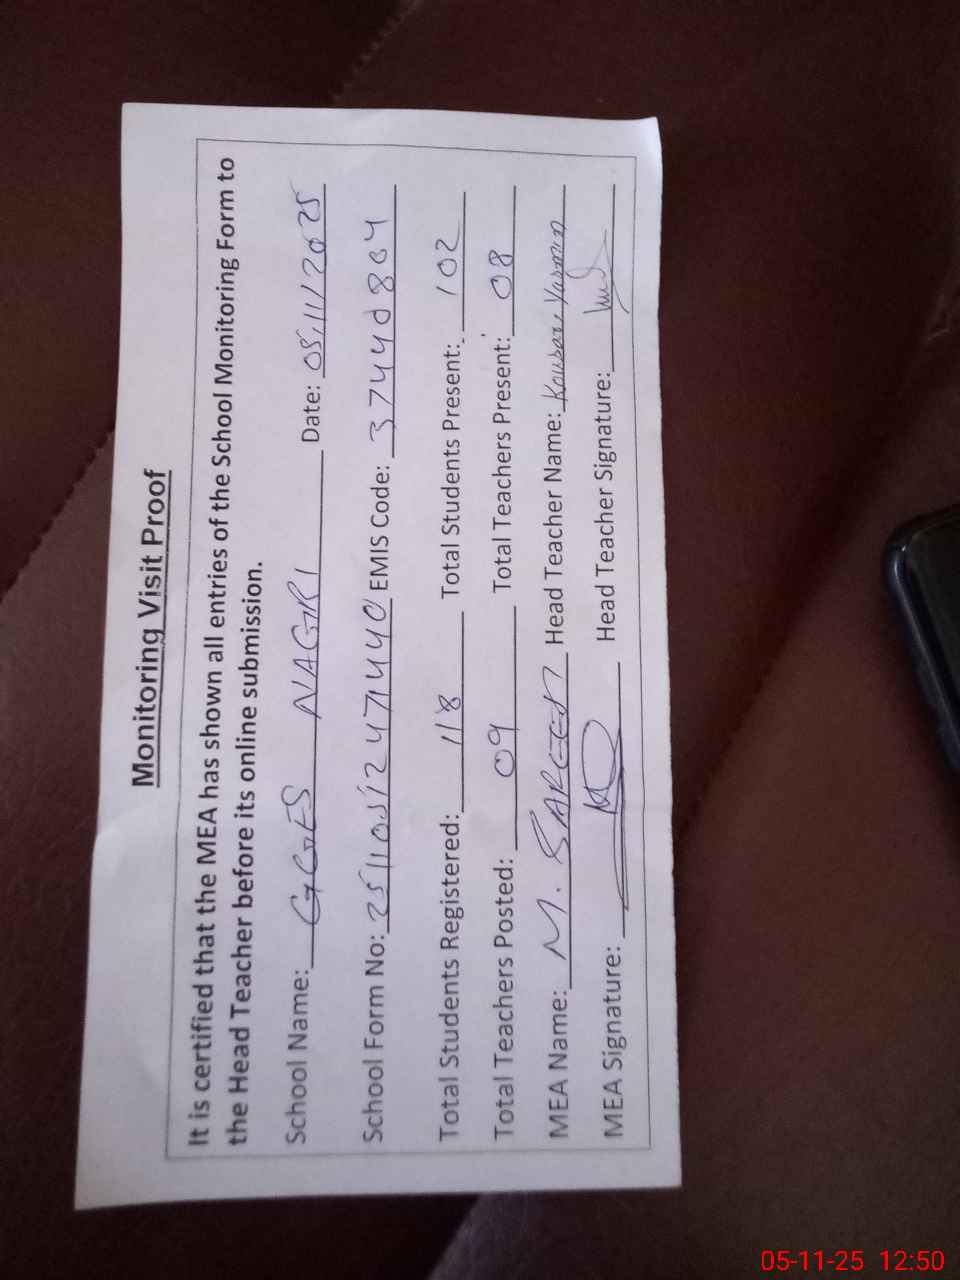 Monitoring Visit Proof
It is certified that the MEA has shown all entries of the School Monitoring Form to
the Head Teacher before its online submission.
School Name: GGES NAGRI Date: 05/11/2025
School Form No: EMIS Code: 37440804
Total Students Registered: 118 Total Students Present: 102
Total Teachers Posted: 09 Total Teachers Present: 08
MEA Name: M. Head Teacher Name: Kousar Yasmin
MEA Signature: Head Teacher Signature:
05-11-25 12:50